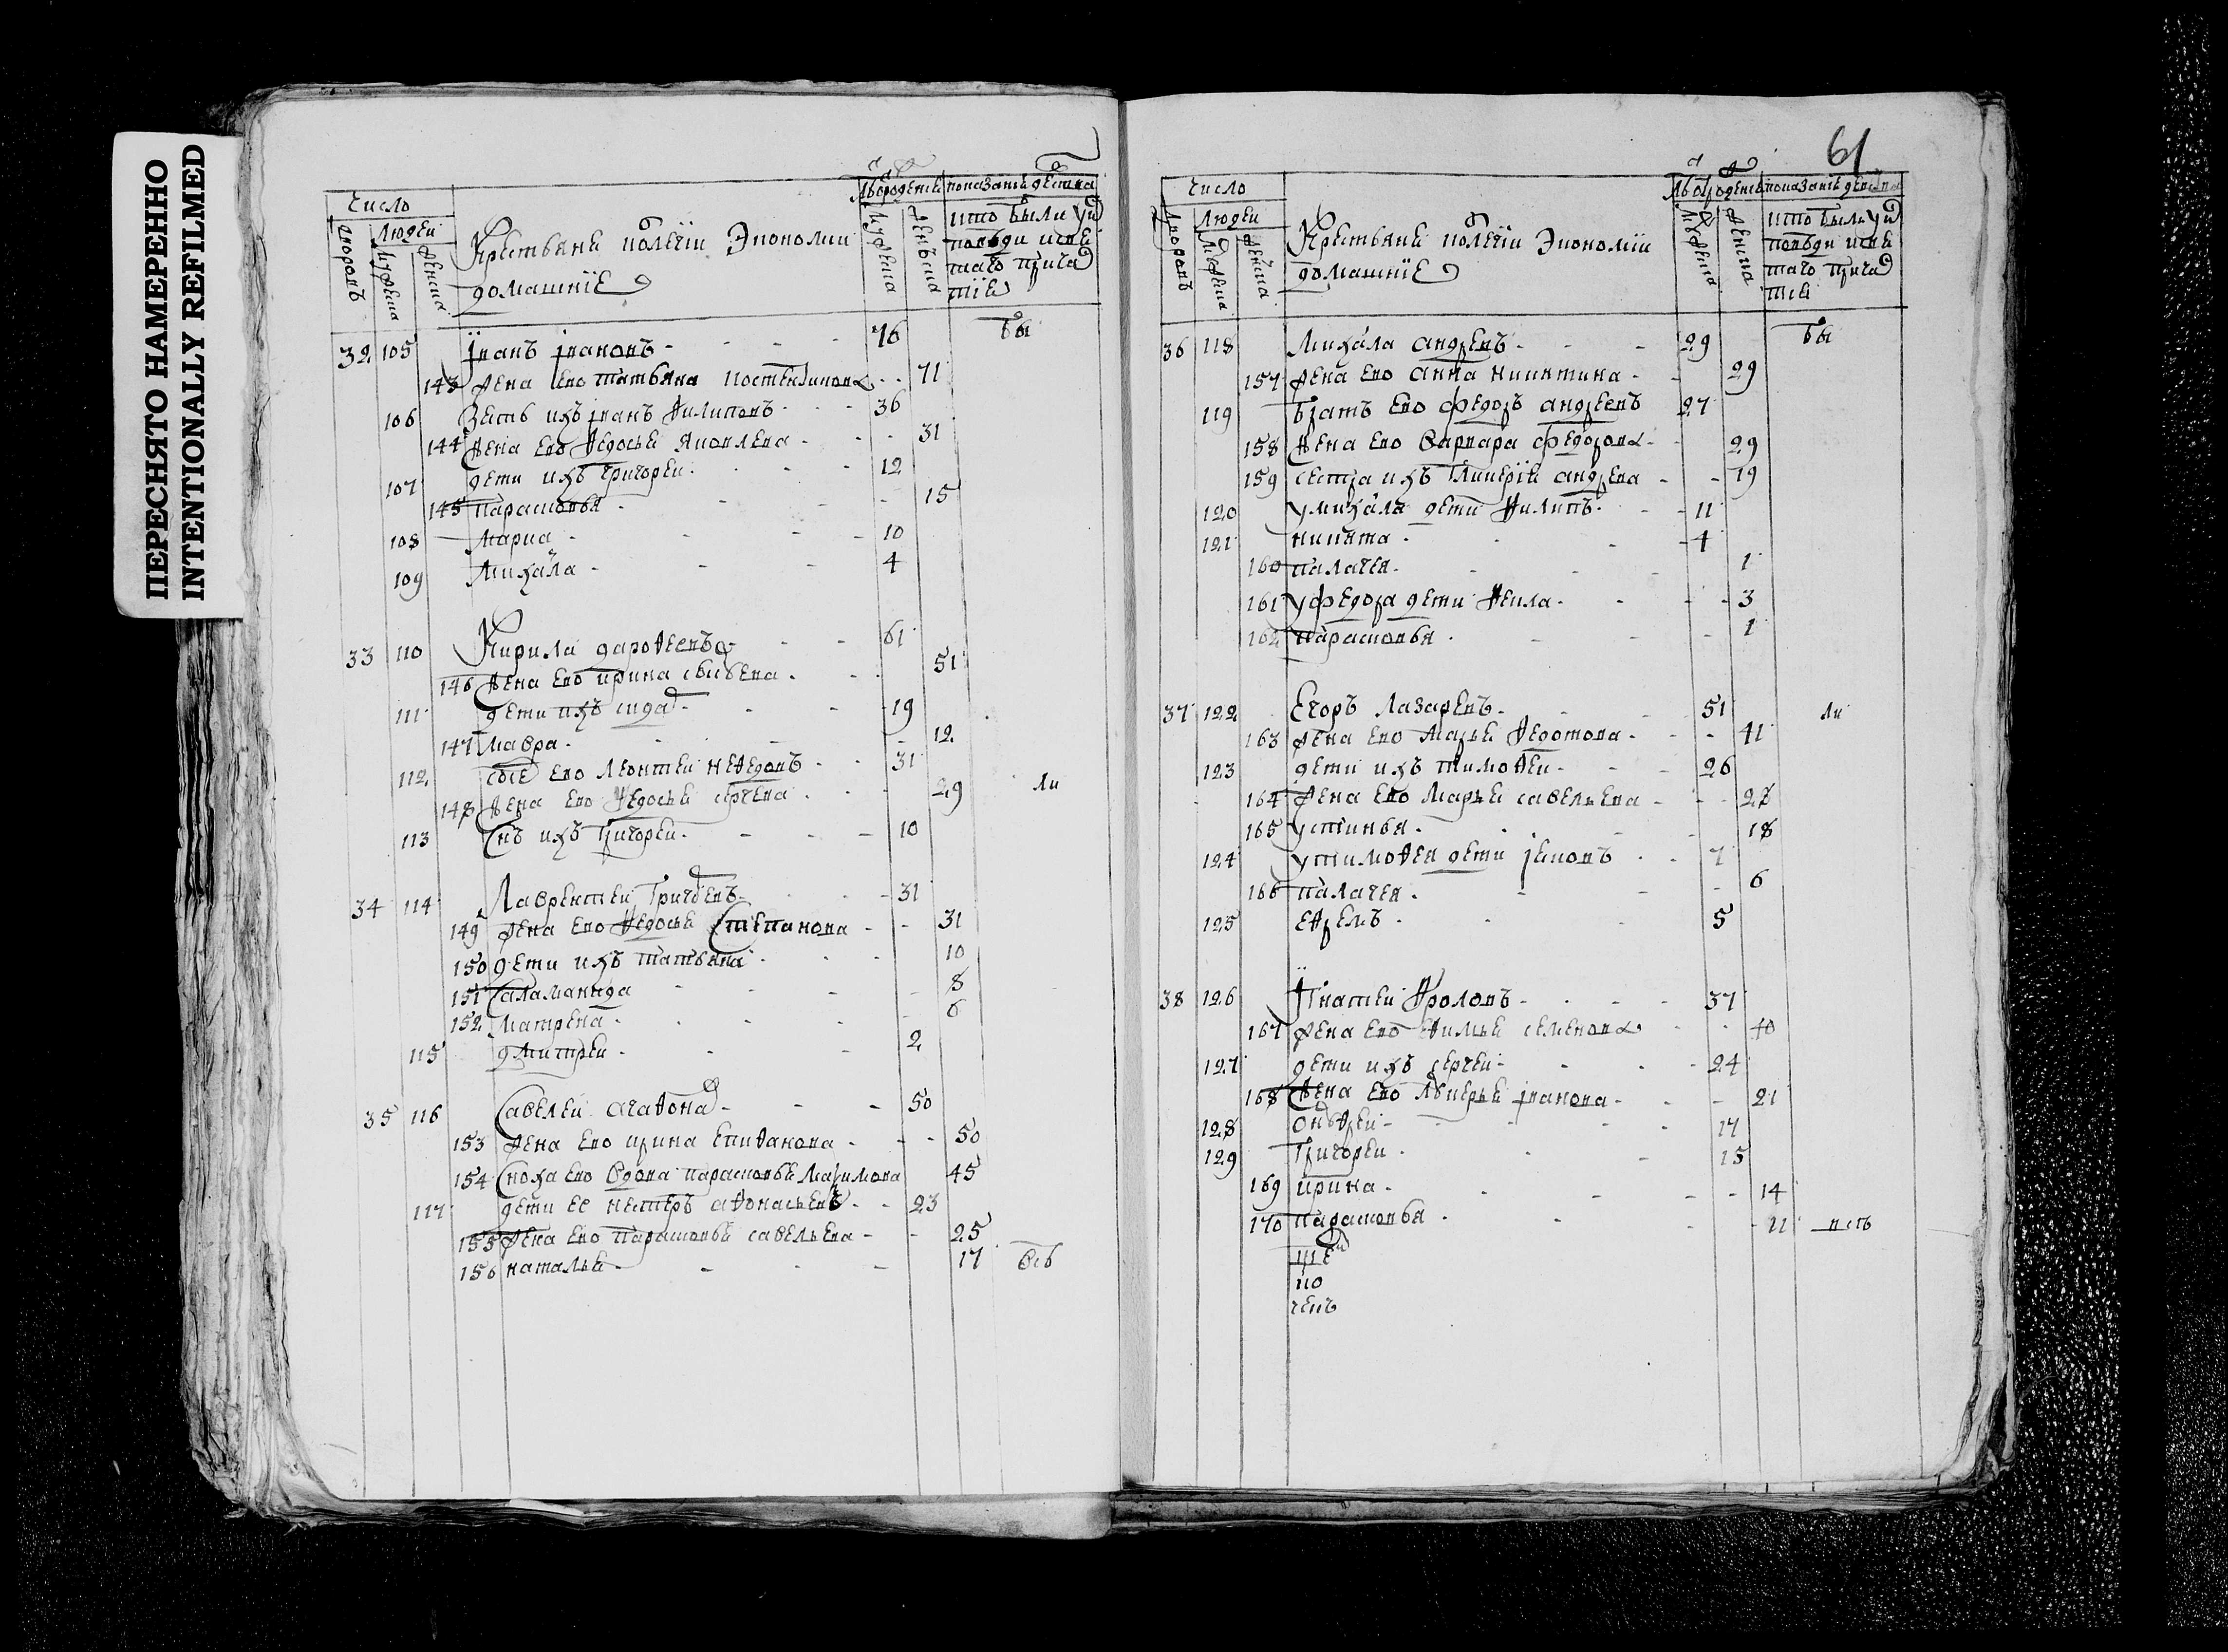 ПЕРЕСНЯТО НАМЕРЕННО
INTENTIONALLY REFILMED
число
дворовъ
людеи
мужеска
женска
Крестьяне колегiи Экономии
домашнiе
лѣ о рожденiя
мужеска
женьска
показанiе действа
кто были у и
споведи и свя
таго прича
стiя
32 105 Iванъ iвановъ - 76 бы
143 жена ево татьяна костентинова 71
106 Зять ихъ iванъ Филиповъ 36
144 жена ево Федосья Яковлева 31
107 дети ихъ григореи 12
145 парасковья 15
108 Марка 10
109 Михаила 4
33 110 Кирила дарофеевъ 61
146 жена ево ирина савъева 51
111 дети ихъ сидор 19
147 Мавра 12
112 ево леонтеи нефедовъ 31
148 жена ево Федосья сергева 29 ли
113 Снъ ихъ григореи 10
34 114 Лаврентеи Григоревъ 31
149 жена ево Федосья Степанова 31
150 дети ихъ татьяна 10
151 Саламанида 8
152 Матрена 6
115 дмитреи 2
35 116 Савелеи агафоно 50
153 жена ево ирина епифанова 50
154 Сноха ево вдова парасковья Маѯимова 45
117 дети ее нестеръ афонасьевъ 23
155 жена ево парасковья савельева 25
156 наталья 17 всѣ
61
число
дворовъ
людеи
мужеска
женска
Крестьяне колегiи Экономiи
домашнiе
лѣ о рожденiя
мужеска
женска
показанiе действа
кто были у и
споведи и свя
таго прича
стiя
36 118 Михаила андревъ 29 бы
157 жена ево анна никитина 29
119 братъ ево федоръ андреевъ 27
158 жена ево варвара федорова 29
159 сестра ихъ Гликерiя андрева 19
120 у михаила дети Филипъ 11
121 никита 4
160 палагея 1
161 у федора дети Фекла 3
162 парасковья 1
37 122 Егоръ Лазаревъ 51 ли
163 жена ево Марья Федотова 41
123 дети ихъ тимофеи 26
164 жена ево Марья савельева 28
165 устинья 18
124 у тимофея дети iаковъ 7
166 палагея 6
125 ефремъ 5
38 126 Iгнатеи Фроловъ 37
167 жена ево ефимья семенова 40
127 дети ихъ сергеи 24
168 жена ево лукерья iванова 21
128 ондреи 17
129 григореи 15
169 ирина 14
170 парасковья 11 всѣ